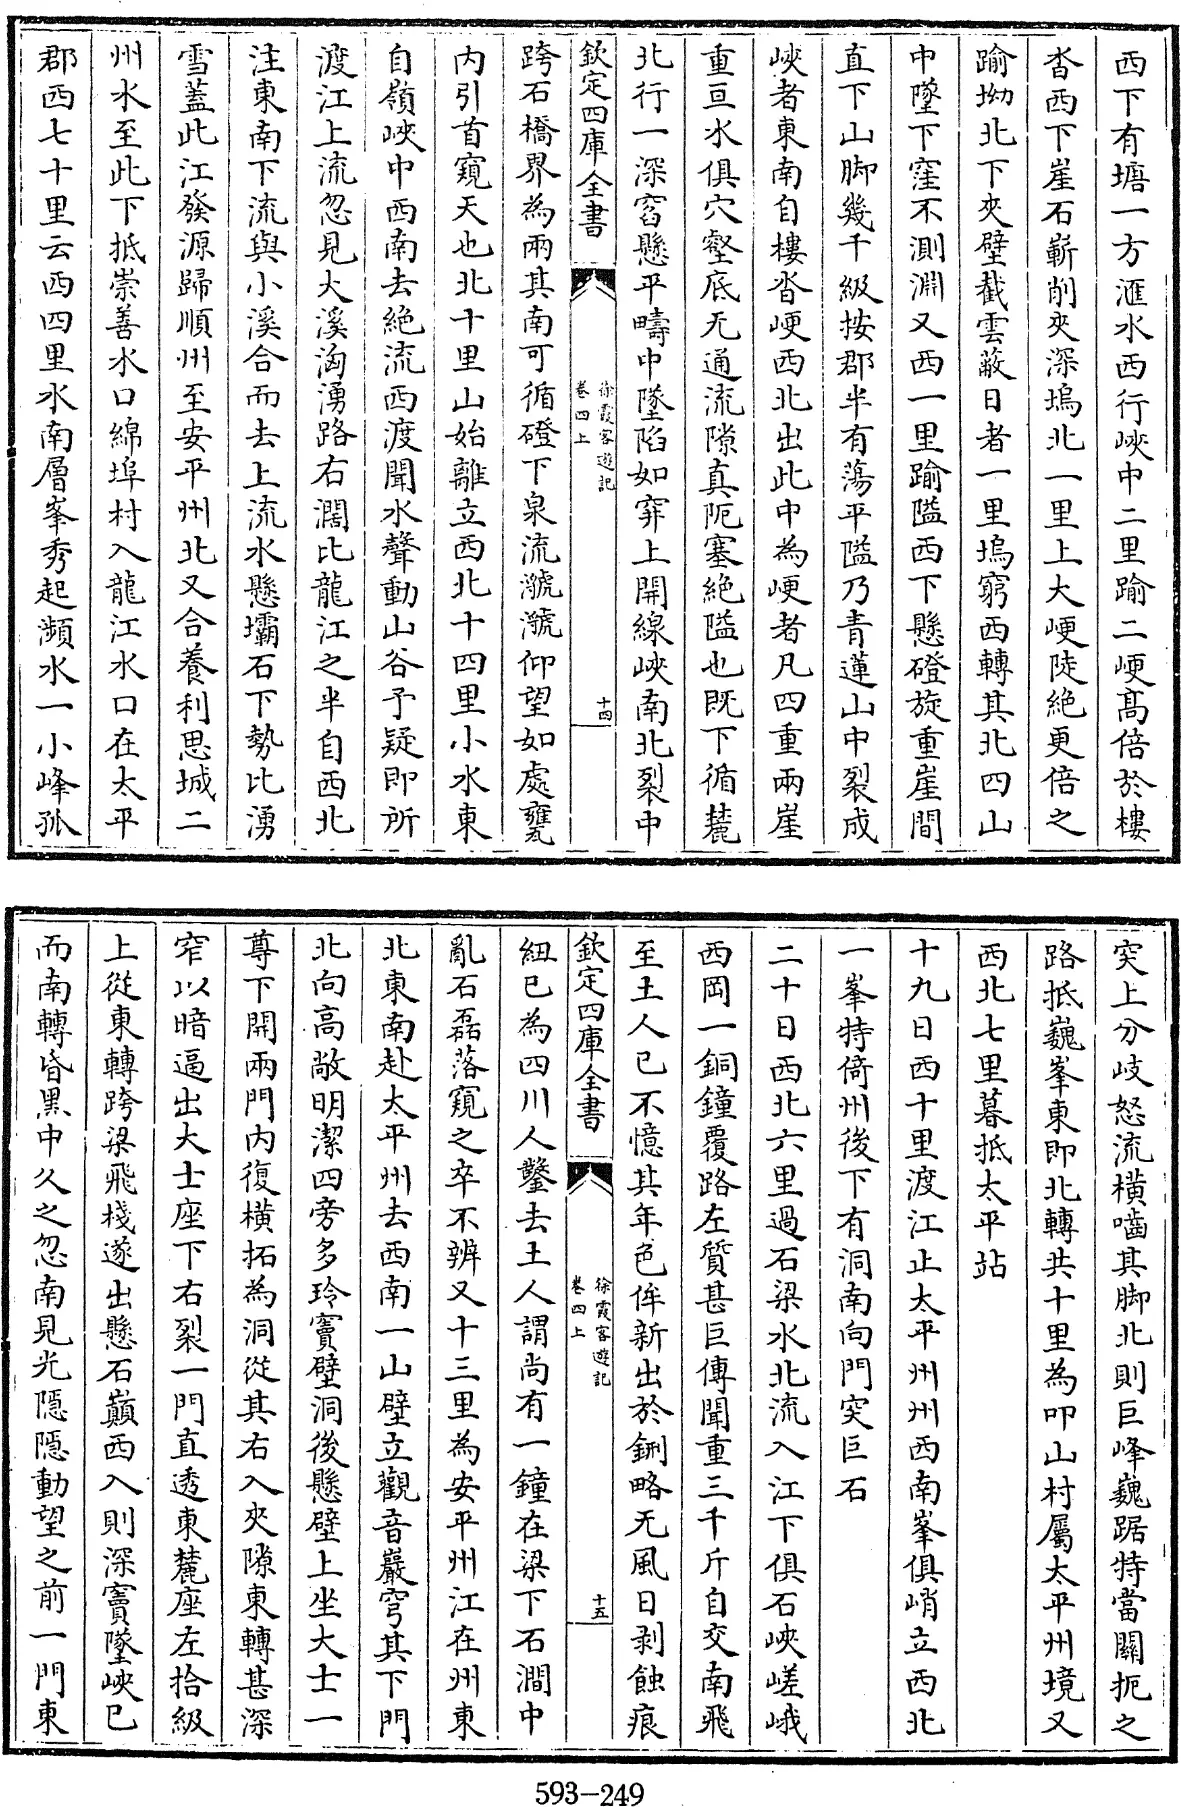 西下有塘一方滙水西行峽中二里踰二㟅髙倍於樓
沓西下崖石嶄削夾深塢北一里上大㟅陡絶更倍之
踰坳北下夾壁截雲蔽日者一里塢窮西轉其北四山
中墜下窪不測淵又西一里踰隘西下懸磴旋重崖間
直下山脚幾千級按郡半有蕩平隘乃青蓮山中裂成
峽者東南自樓沓㟅西北出此中為㟅者凡四重兩崖
重亘水俱穴壑底无通流隙真阨塞絶隘也既下循麓
北行一深窞懸平疇中墜陷如穽上開線峽南北裂中
欽定四庫全書
徐霞客遊記
卷四上
十四
跨石橋界為兩其南可循磴下泉流㶁㶁仰望如處甕
内引首窺天也北十里山始離立西北十四里小水東
自嶺峽中西南去絶流西渡聞水聲動山谷予疑即所
渡江上流忽見大溪洶湧路右濶比龍江之半自西北
注東南下流與小溪合而去上流水懸壩石下勢比湧
雪蓋此江發源歸順州至安平州北又合養利思城二
州水至此下抵崇善水口綿埠村入龍江水口在太平
郡西七十里云西四里水南層峯秀起瀕水一小峰孤
突上分岐怒流橫嚙其脚北則巨峰巍踞特當關扼之
路抵巍峯東即北轉共十里為叩山村屬太平州境又
西北七里暮抵太平站
十九日西十里渡江止太平州州西南峯俱峭立西北
一峯特倚州後下有洞南向門突巨石
二十日西北六里過石梁水北流入江下俱石峽嵯峨
西岡一銅鐘覆路左質甚巨傳聞重三千斤自交南飛
至土人已不憶其年色侔新出於鉶略无風日剥蝕痕
欽定四庫全書
徐霞客遊記
卷四上
十五
紐已為四川人鑿去土人謂尚有一鐘在梁下石澗中
亂石磊落窺之卒不辨又十三里為安平州江在州東
北東南赴太平州去西南一山壁立觀音巖穹其下門
北向高敞明潔四旁多玲竇壁洞後懸壁上坐大士一
尊下開兩門内復橫拓為洞從其右入夾隙東轉甚深
窄以暗逼出大士座下右裂一門直透東麓座左拾級
上從東轉跨梁飛棧遂出懸石巔西入則深竇墜峽已
而南轉昏黑中久之忽南見光隱隱動望之前一門東
593-249